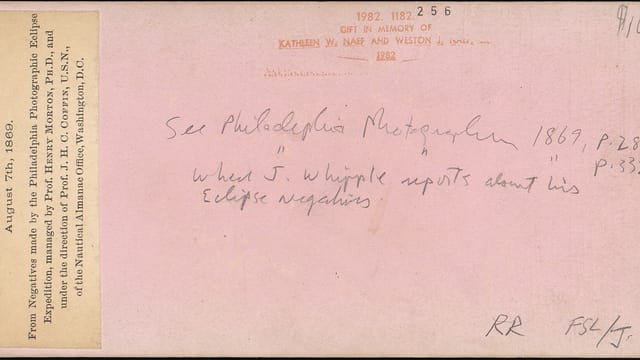 August 7th, 1869.
From Negatives made by the Philadelphia Photographic Eclipse
Expedition, managed by Prof. HENRY MORTON, PH.D., and
under the direction of Prof. J. H. C. COFFIN, U.S.N.,
of the Nautical Almanac Office, Washington, D.C.
1982. 1182. 256
GIFT IN MEMORY OF
KATHLEEN W. NAEF AND WESTON J. NAEF,
1982
See Philadelphia Photographer 1869, p. 28
" " " p. 33
Where J. Whipple reports about his
Eclipse negatives
RR FSL/J.